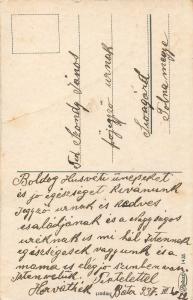 Tek. Szondy János
főjegyző urnak
Szvagárd
Tolna megye
Boldog Husvéti ünnepeket
és jó egésséget Kivánunk
Jegyző urnak és kedves
családjának és a Nagyságos
uréknak is mi hál Istennek
egésségesek vagyunk és a
mama is elég jó
Istenvelük Tisztelettel
Horváthék Báta 937. III